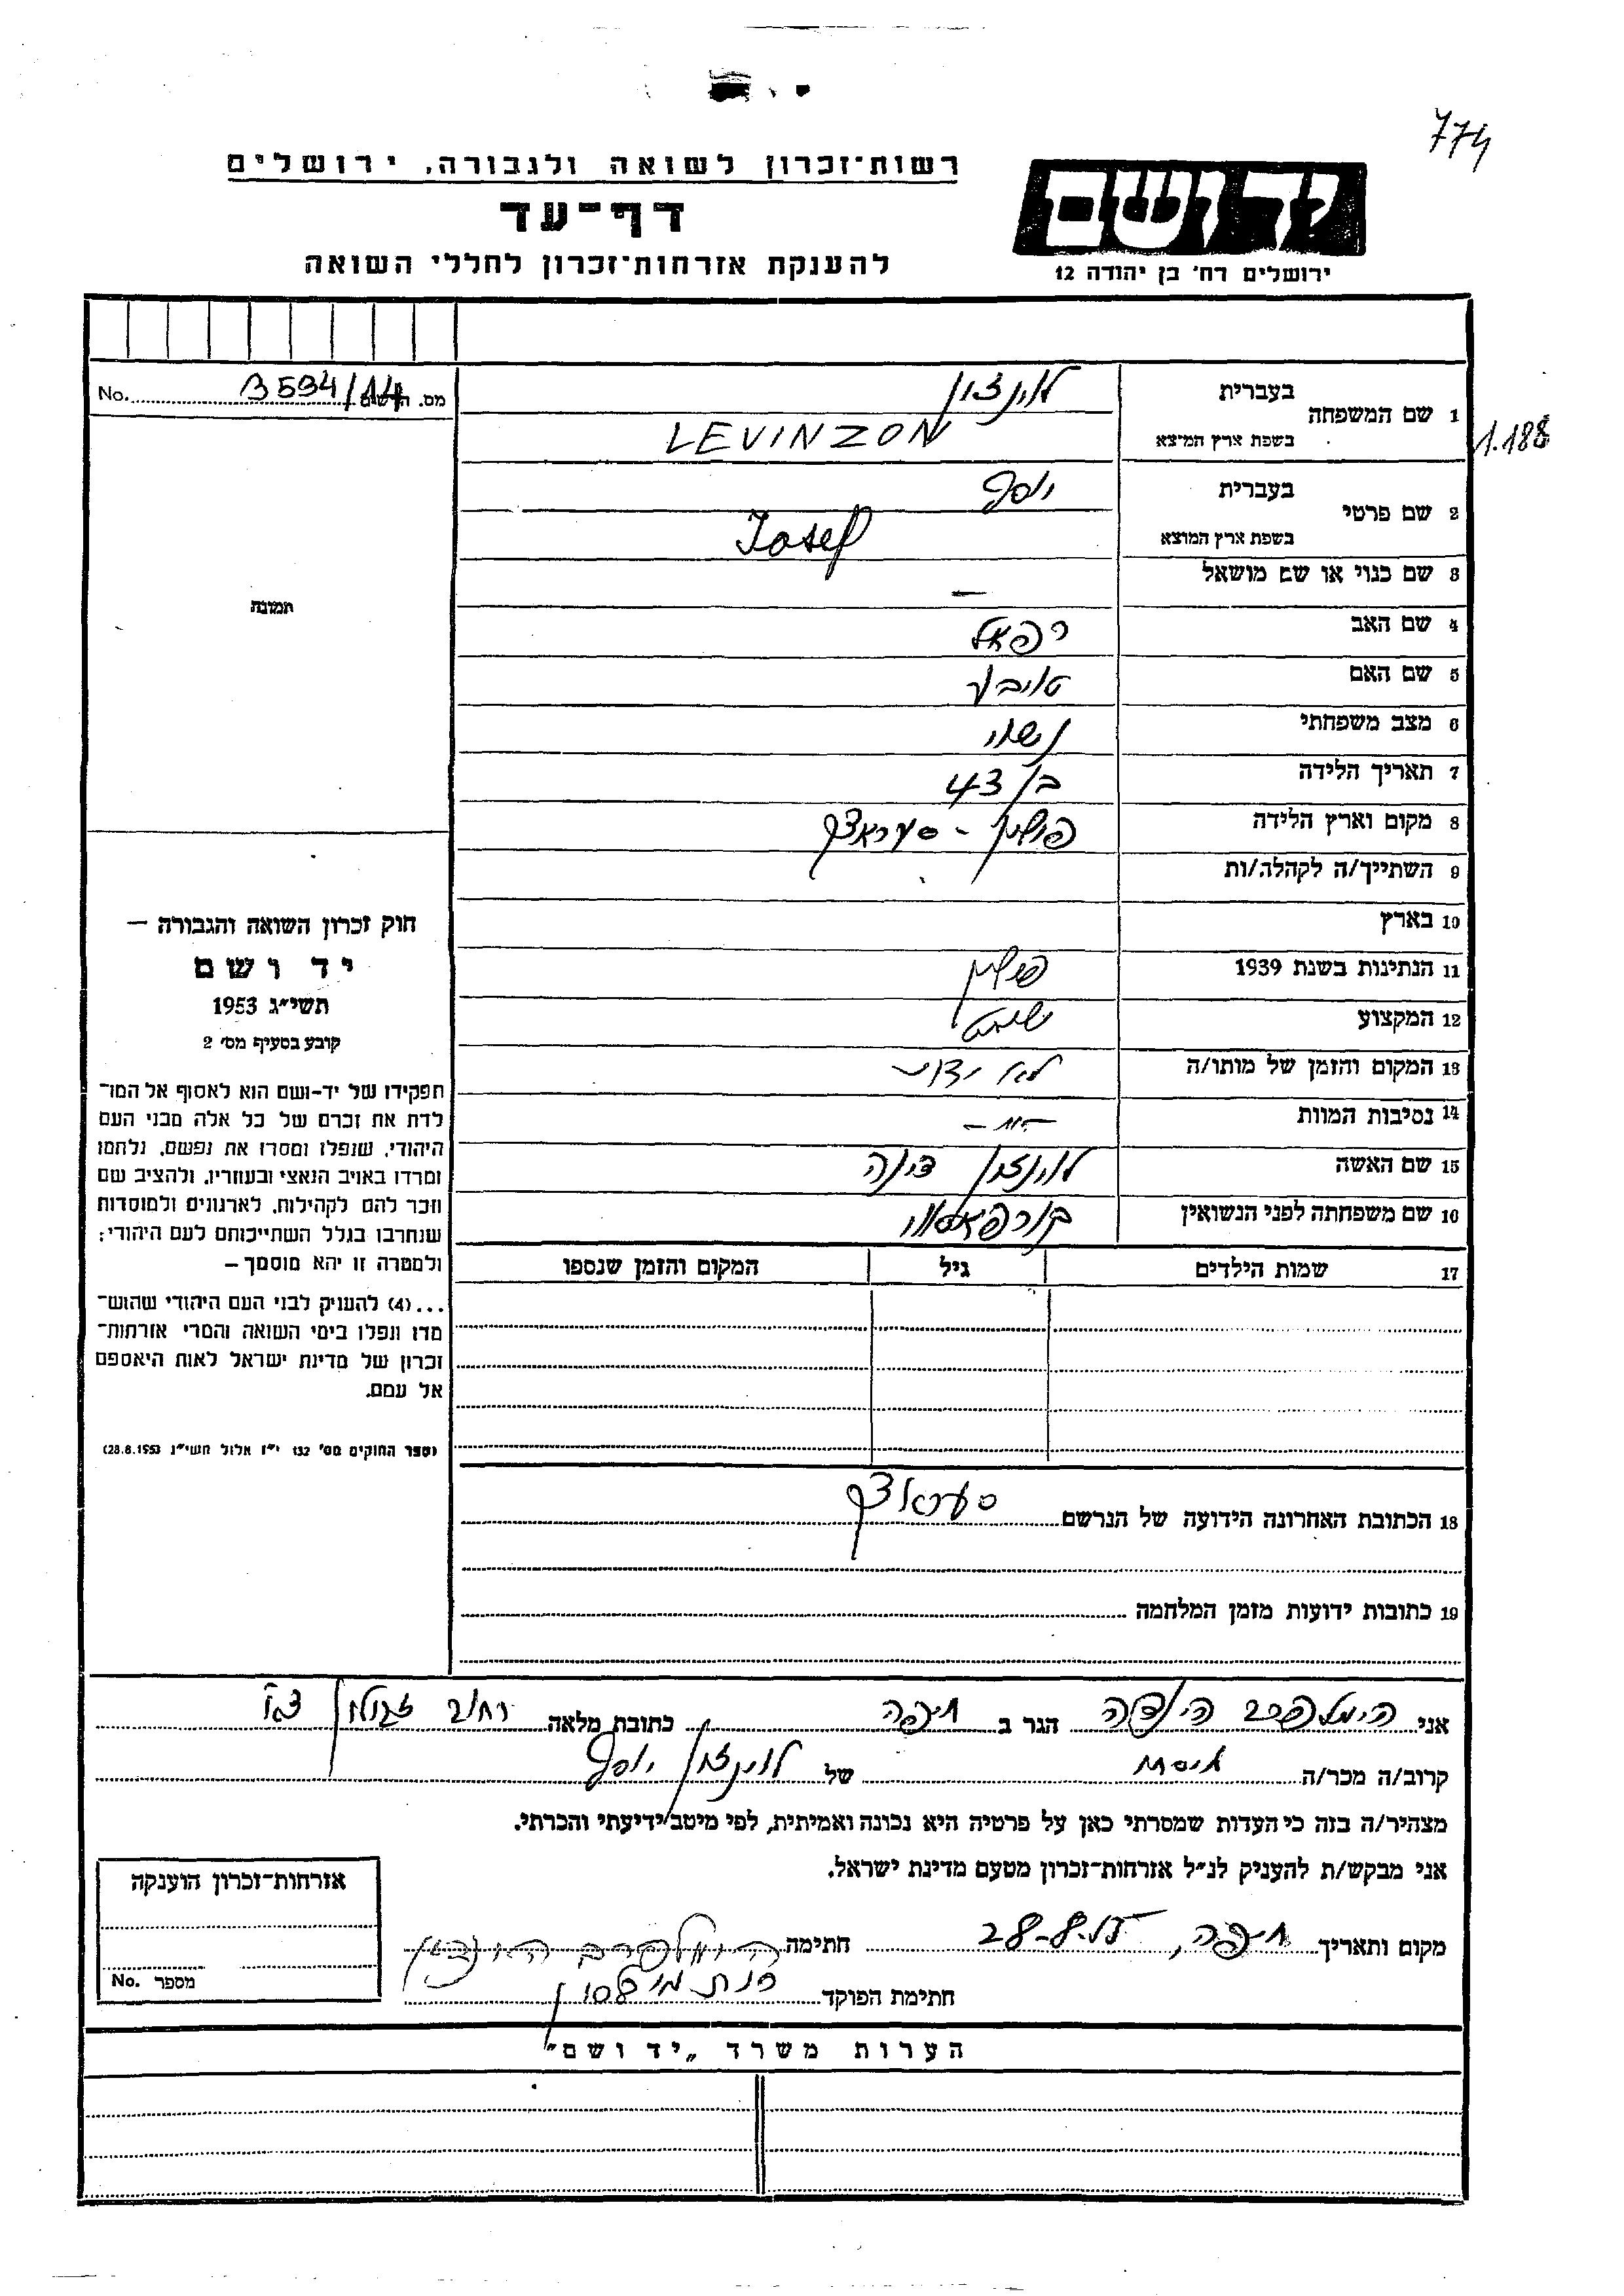 774
רשות־זכרון לשואה ולגבורה, ירושלים
דף־עד
להענקת אזרחות־זכרון לחללי השואה
יד ושם
ירושלים רח' בן יהודה 12
No. 3594/14 מס.
1.188
1 שם המשפחה בעברית לוינזון
בשפת ארץ המוצא LEVINZON
2 שם פרטי בעברית יוסף
בשפת ארץ המוצא Iosef
3 שם כנוי או שם מושאל —
4 שם האב רפאל
5 שם האם טויבע
6 מצב משפחתי נשוי
7 תאריך הלידה בן 43
8 מקום וארץ הלידה פולין -
9 השתייך/ה לקהלה/ות
10 בארץ
11 הנתינות בשנת 1939 פולין
12 המקצוע
13 המקום והזמן של מותו/ה לא ידוע
14 נסיבות המוות -"-
15 שם האשה לוינזון דינה
16 שם משפחתה לפני הנשואין
17 שמות הילדים גיל המקום והזמן שנספו
18 הכתובת האחרונה הידועה של הנרשם
19 כתובות ידועות מזמן המלחמה
תמונה
חוק זכרון השואה והגבורה —
יד ושם
תשי"ג 1953
קובע בסעיף מס' 2
תפקידו של יד-ושם הוא לאסוף אל המו־
לדת את זכרם של כל אלה מבני העם
היהודי, שנפלו ומסרו את נפשם, נלחמו
ומרדו באויב הנאצי ובעוזריו, ולהציב שם
וזכר להם לקהילות, לארגונים ולמוסדות
שנחרבו בגלל השתייכותם לעם היהודי;
ולמטרה זו יהא מוסמך —
...(4) להעניק לבני העם היהודי שהוש־
מדו ונפלו בימי השואה והמרי אזרחות־
זכרון של מדינת ישראל לאות היאספם
אל עמם.
(ספר החוקים מס' 132 י"ז אלול תשי"ג 28.8.1953)
אני הימלפרב הינדה הגר ב חיפה כתובת מלאה רחוב זבולון
קרוב/ה מכר/ה של לוינזון יוסף
מצהיר/ה בזה כי העדות שמסרתי כאן על פרטיה היא נכונה ואמיתית, לפי מיטב ידיעתי והכרתי.
אני מבקש/ת להעניק לנ"ל אזרחות־זכרון מטעם מדינת ישראל.
מקום ותאריך חיפה, 28-8- חתימה
חתימת הפוקד
אזרחות־זכרון הוענקה
מספר No.
הערות משרד „יד ושם"